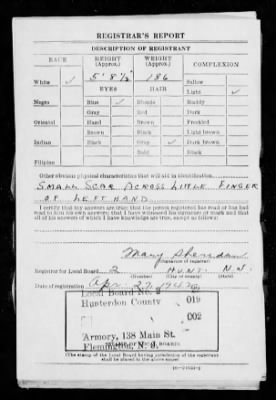 REGISTRAR'S REPORT
DESCRIPTION OF REGISTRANT
RACE HEIGHT (Approx.) WEIGHT (Approx.) COMPLEXION
White ✓ 5' 8½" 186 Sallow
EYES HAIR Light ✓
Negro Blue ✓ Blonde Ruddy
Gray Red Dark
Oriental Hazel Brown Freckled
Brown Black Light brown
Indian Black Gray ✓ Dark brown
Bald Black
Filipino
Other obvious physical characteristics that will aid in identification
SMALL SCAR ACROSS LITTLE FINGER
OF LEFT HAND
I certify that my answers are true; that the person registered has read or has had
read to him his own answers; that I have witnessed his signature or mark and that
all of his answers of which I have knowledge are true, except as follows:
Mary Sheridan
(Signature of registrar)
Registrar for Local Board 2 HUNT. N.J.
(Number) (City or county) (State)
Date of registration Apr. 27, 1942
Local Board No. 2
Hunterdon County 019
002
Armory, 138 Main St.
Flemington, N. J.
(The stamp of the Local Board having jurisdiction of the registrant
shall be placed in the above space)